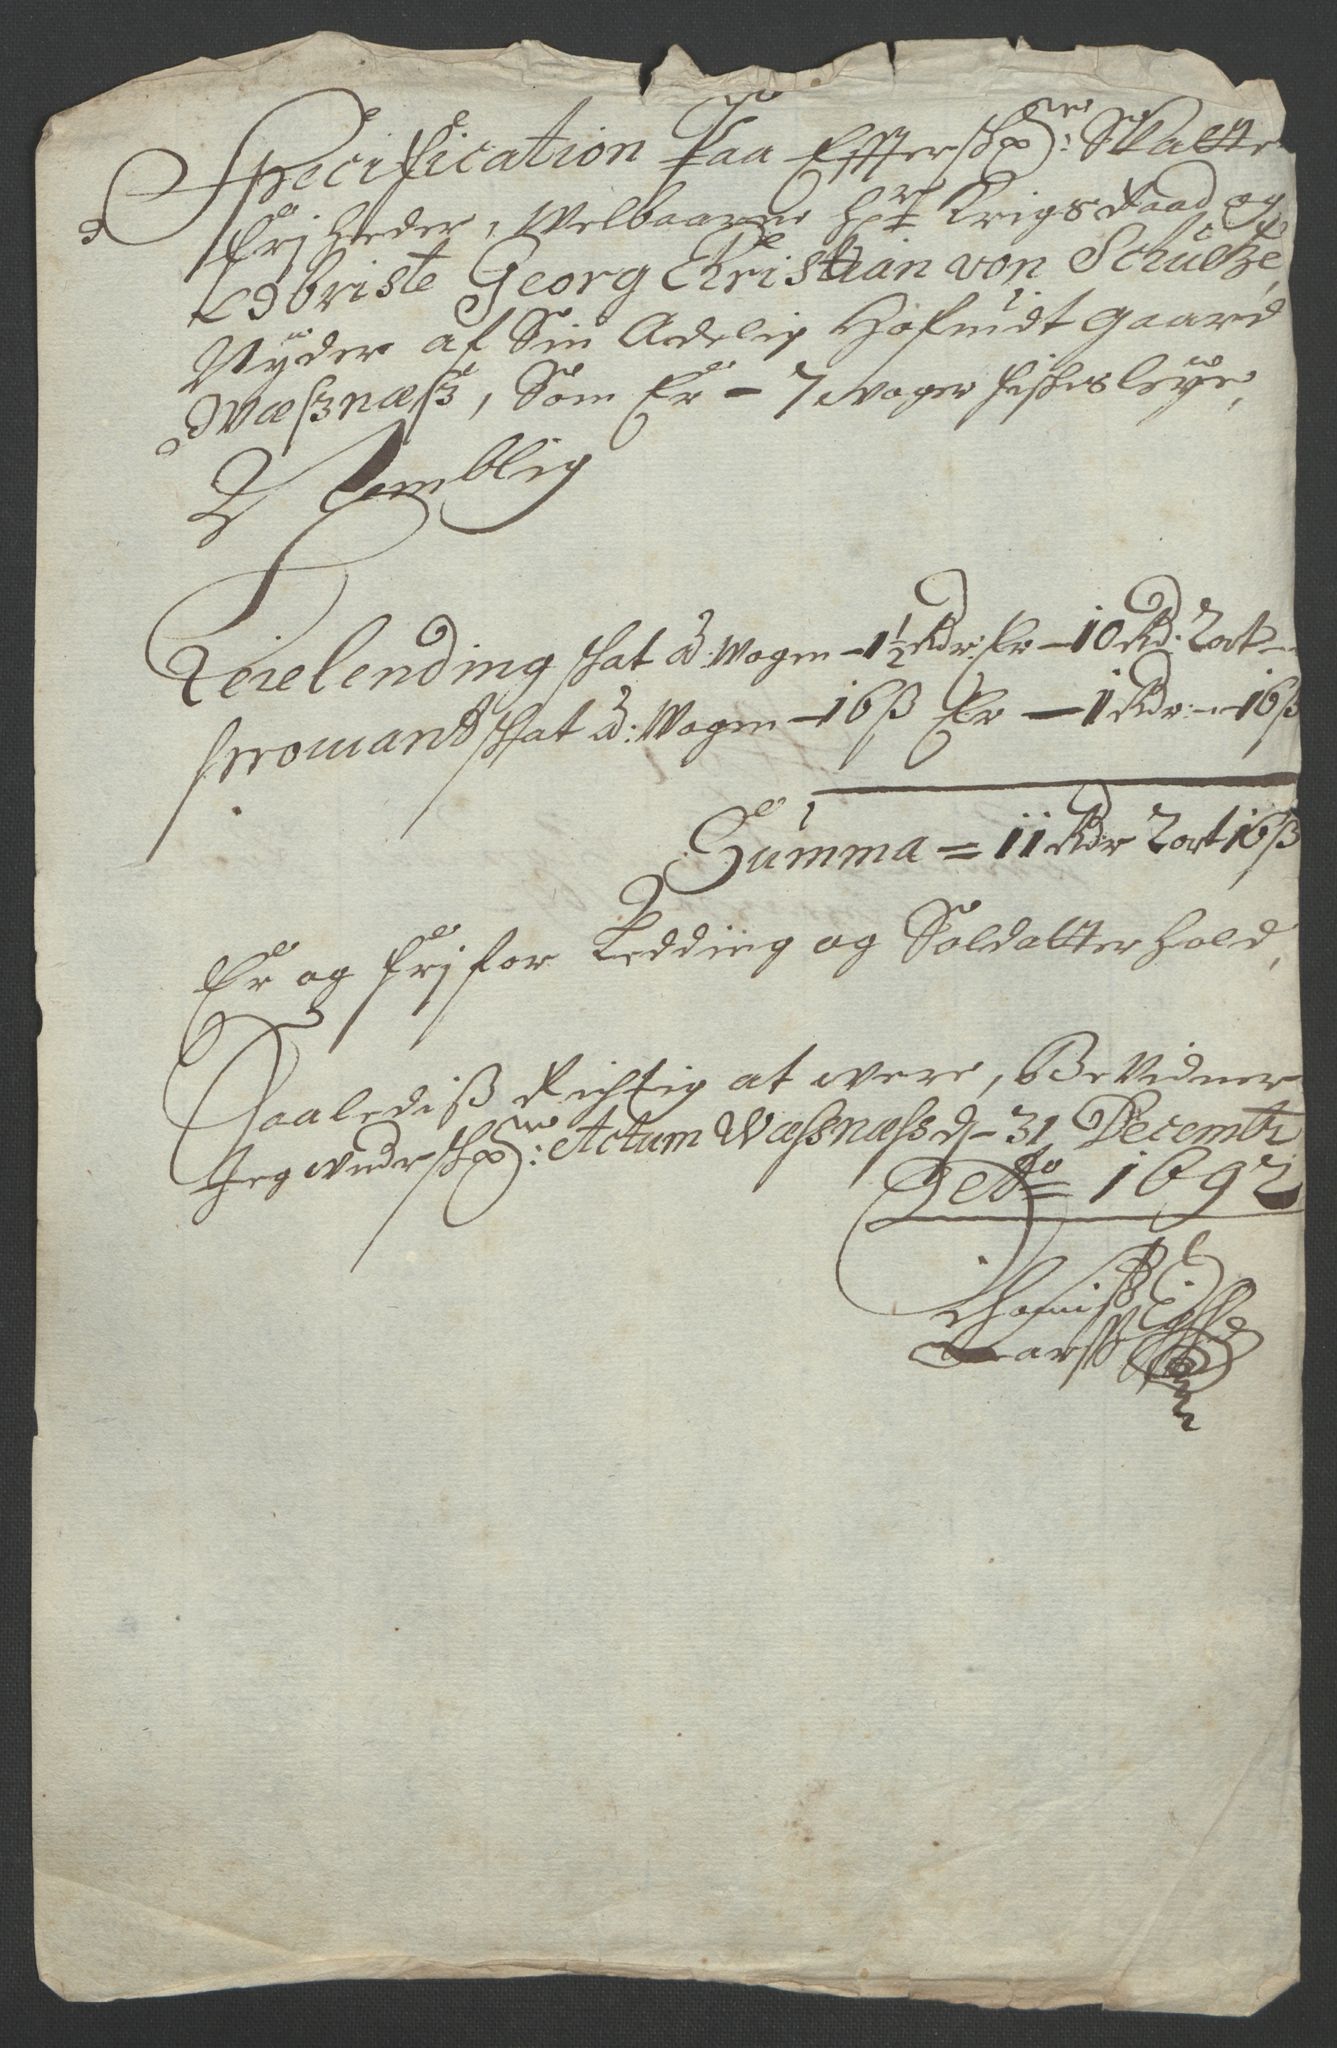 Specification Paa Effterschr:ne Skatte
Frj heder, Welbaarne Hr Krigs Raad og
Obriste Georg Christian von Schultze,
Nyder af Sin Adelig Hofuidt gaard
Wæssnæss, Som Er – 7 woger fiskes leye,
Nemblig
Leielending skat á Wogen – 1½ Rdr: Er – 10 Rd: 2 ort –
Prowiant skat á: Wogen – 16 ß Er – 1 Rdr: – 16 ß
Summa = 11 Rdr 2 ort 16 ß
Er og frj for Ledding og Soldatter hold,
Saalediß Richtig at were, Be Vidner
Jeg underschr:ne Actum Wæssnæss d – 31 Decembr
Ao 1692